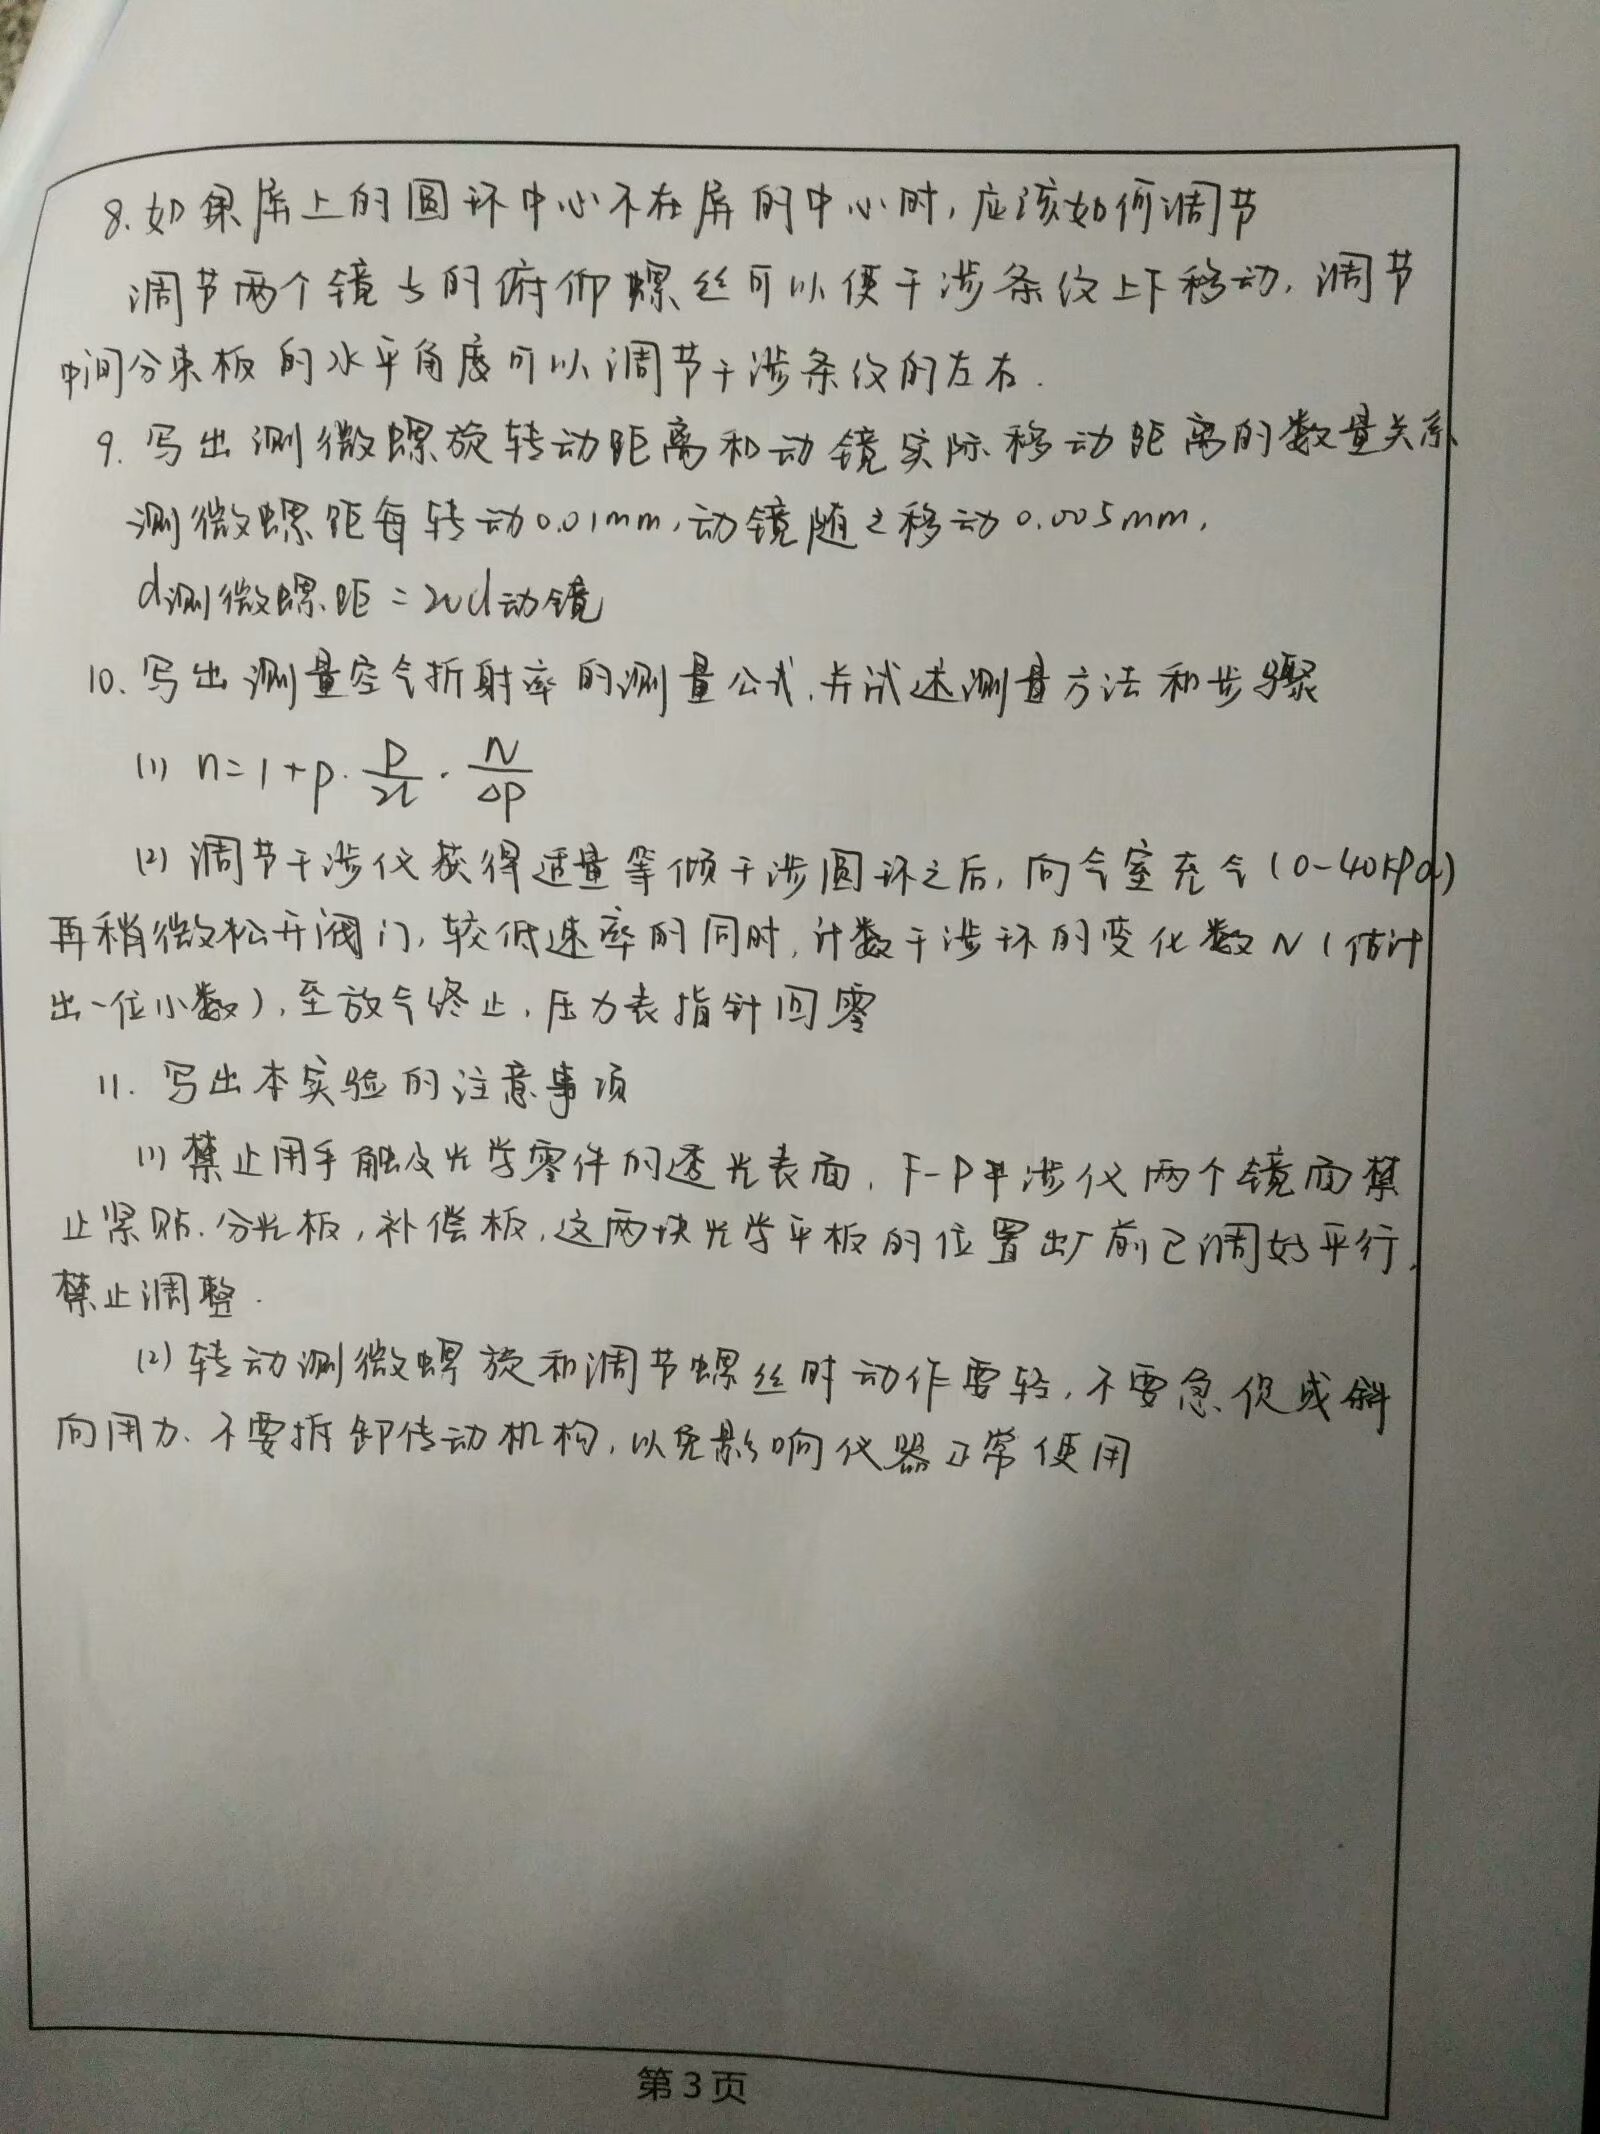 8.如果屏上的圆环中心不在屏的中心时,应该如何调节
调节两个镜片的俯仰螺丝可以使干涉条纹上下移动,调节
中间分束板的水平角度可以调节干涉条纹的左右.
9.写出测微螺旋转动距离和动镜实际移动距离的数量关系
测微螺距每转动0.01mm,动镜随之移动0.005mm,
d测微螺距=2d动镜
10.写出测量空气折射率的测量公式,并试述测量方法和步骤
(1) n=1+p·P/2L·N/ΔP
(2)调节干涉仪获得适量等倾干涉圆环之后,向气室充气(0-40kPa)
再稍微松开阀门,较低速率的同时,计数干涉环的变化数N(估计
出一位小数),至放气终止,压力表指针回零
11.写出本实验的注意事项
(1)禁止用手触及光学零件的透光表面,F-P干涉仪两个镜面禁
止紧贴.分光板,补偿板,这两块光学平板的位置出厂前已调好平行,
禁止调整.
(2)转动测微螺旋和调节螺丝时动作要轻,不要急促或斜
向用力.不要拆卸传动机构,以免影响仪器正常使用
第3页